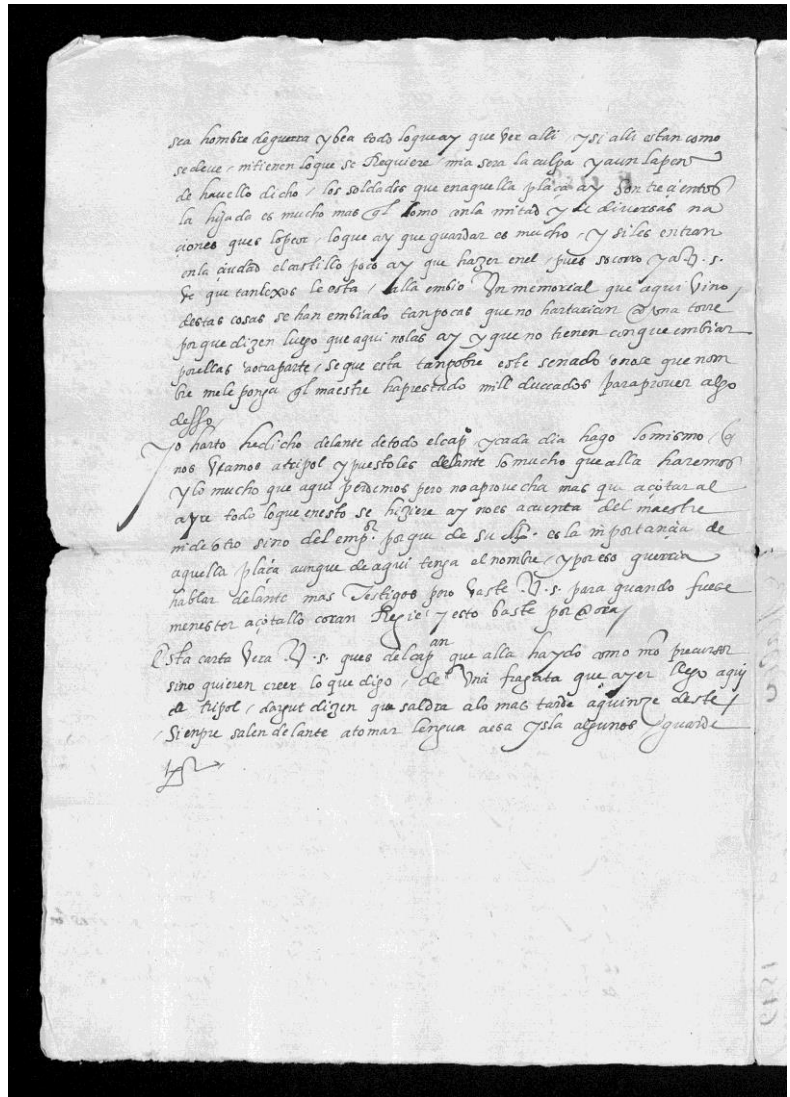 sea hombre deguerra y bea todo loque ay que ver alli / y si alli estan como
sedeve / nitienen loque se Requiere / mia sera la culpa y aun la pena
de havello dicho / los soldados que enaquella plaça ay son trecientos
la hijada es mucho mas ql lomo conla mitad y de diversas na
ciones ques lopeor / loque ay que guardar es mucho / y siles entran
enla ciudad elcastillo poco ay que hazer enel / pues socorro ya V. s.
ve que tanlexos le esta / alla embio Un memorial que aqui vino /
destas cosas se han embiado tanpocas que no hartarian a una torre
porque dizen luego que aqui nolas ay y que no tienen conque embiar
porellas aotraparte / se que esta tanpobre este senado onose que nom
bre mele ponga ql maestre haprestado mill duccados paraprover algo
desso /
yo harto hedicho delante detodo elcapo ycada dia hago lomismo / q
nos vamos atripol y puestoles delante lomucho que alla haremos
y lo mucho que aqui perdemos pero no aprovecha mas que açotar al
ayre todo loque enesto se hiziere ay noes acuenta del maestre
nideotro sino del empor. porque de su Mt. es la inportancia de
aquella plaça aunque de aqui tenga el nombre / y por eso querria
hablar delante mas Testigos pero baste V. s. para quando fuese
menester açotallo coran Regie / y esto baste por aora /
Esta carta vera V. s. ques delcapan que alla haydo como mo precursor
sino quieren creer lo que digo / Una fragata que ayer llego aqui
de tripol / dargut dizen que saldra alo mas tarde aquinze deste /
/ Sienpre salen delante atomar lengua aesa ysla algunos / guarde